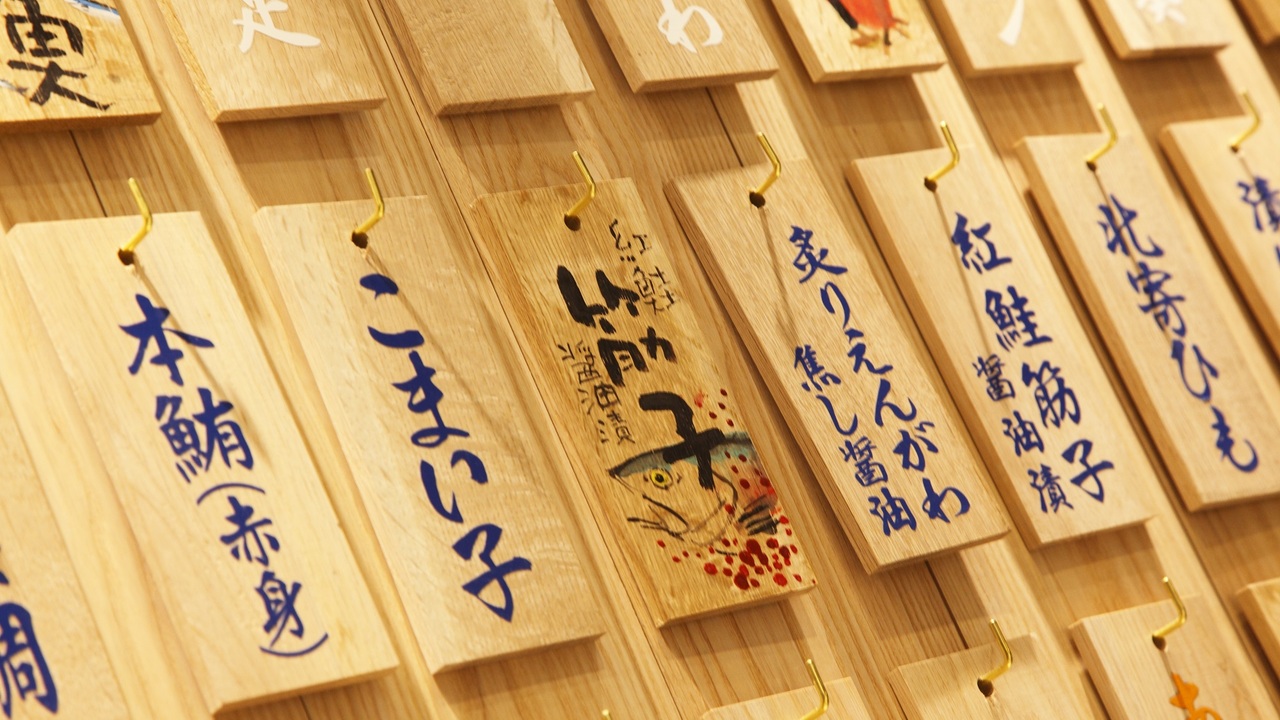 わ
本鮪(赤身)
こまい子
紅鮭
筋子
醤油漬
炙りえんがわ
焦し醤油
紅鮭筋子
醤油漬
北寄ひも
漬